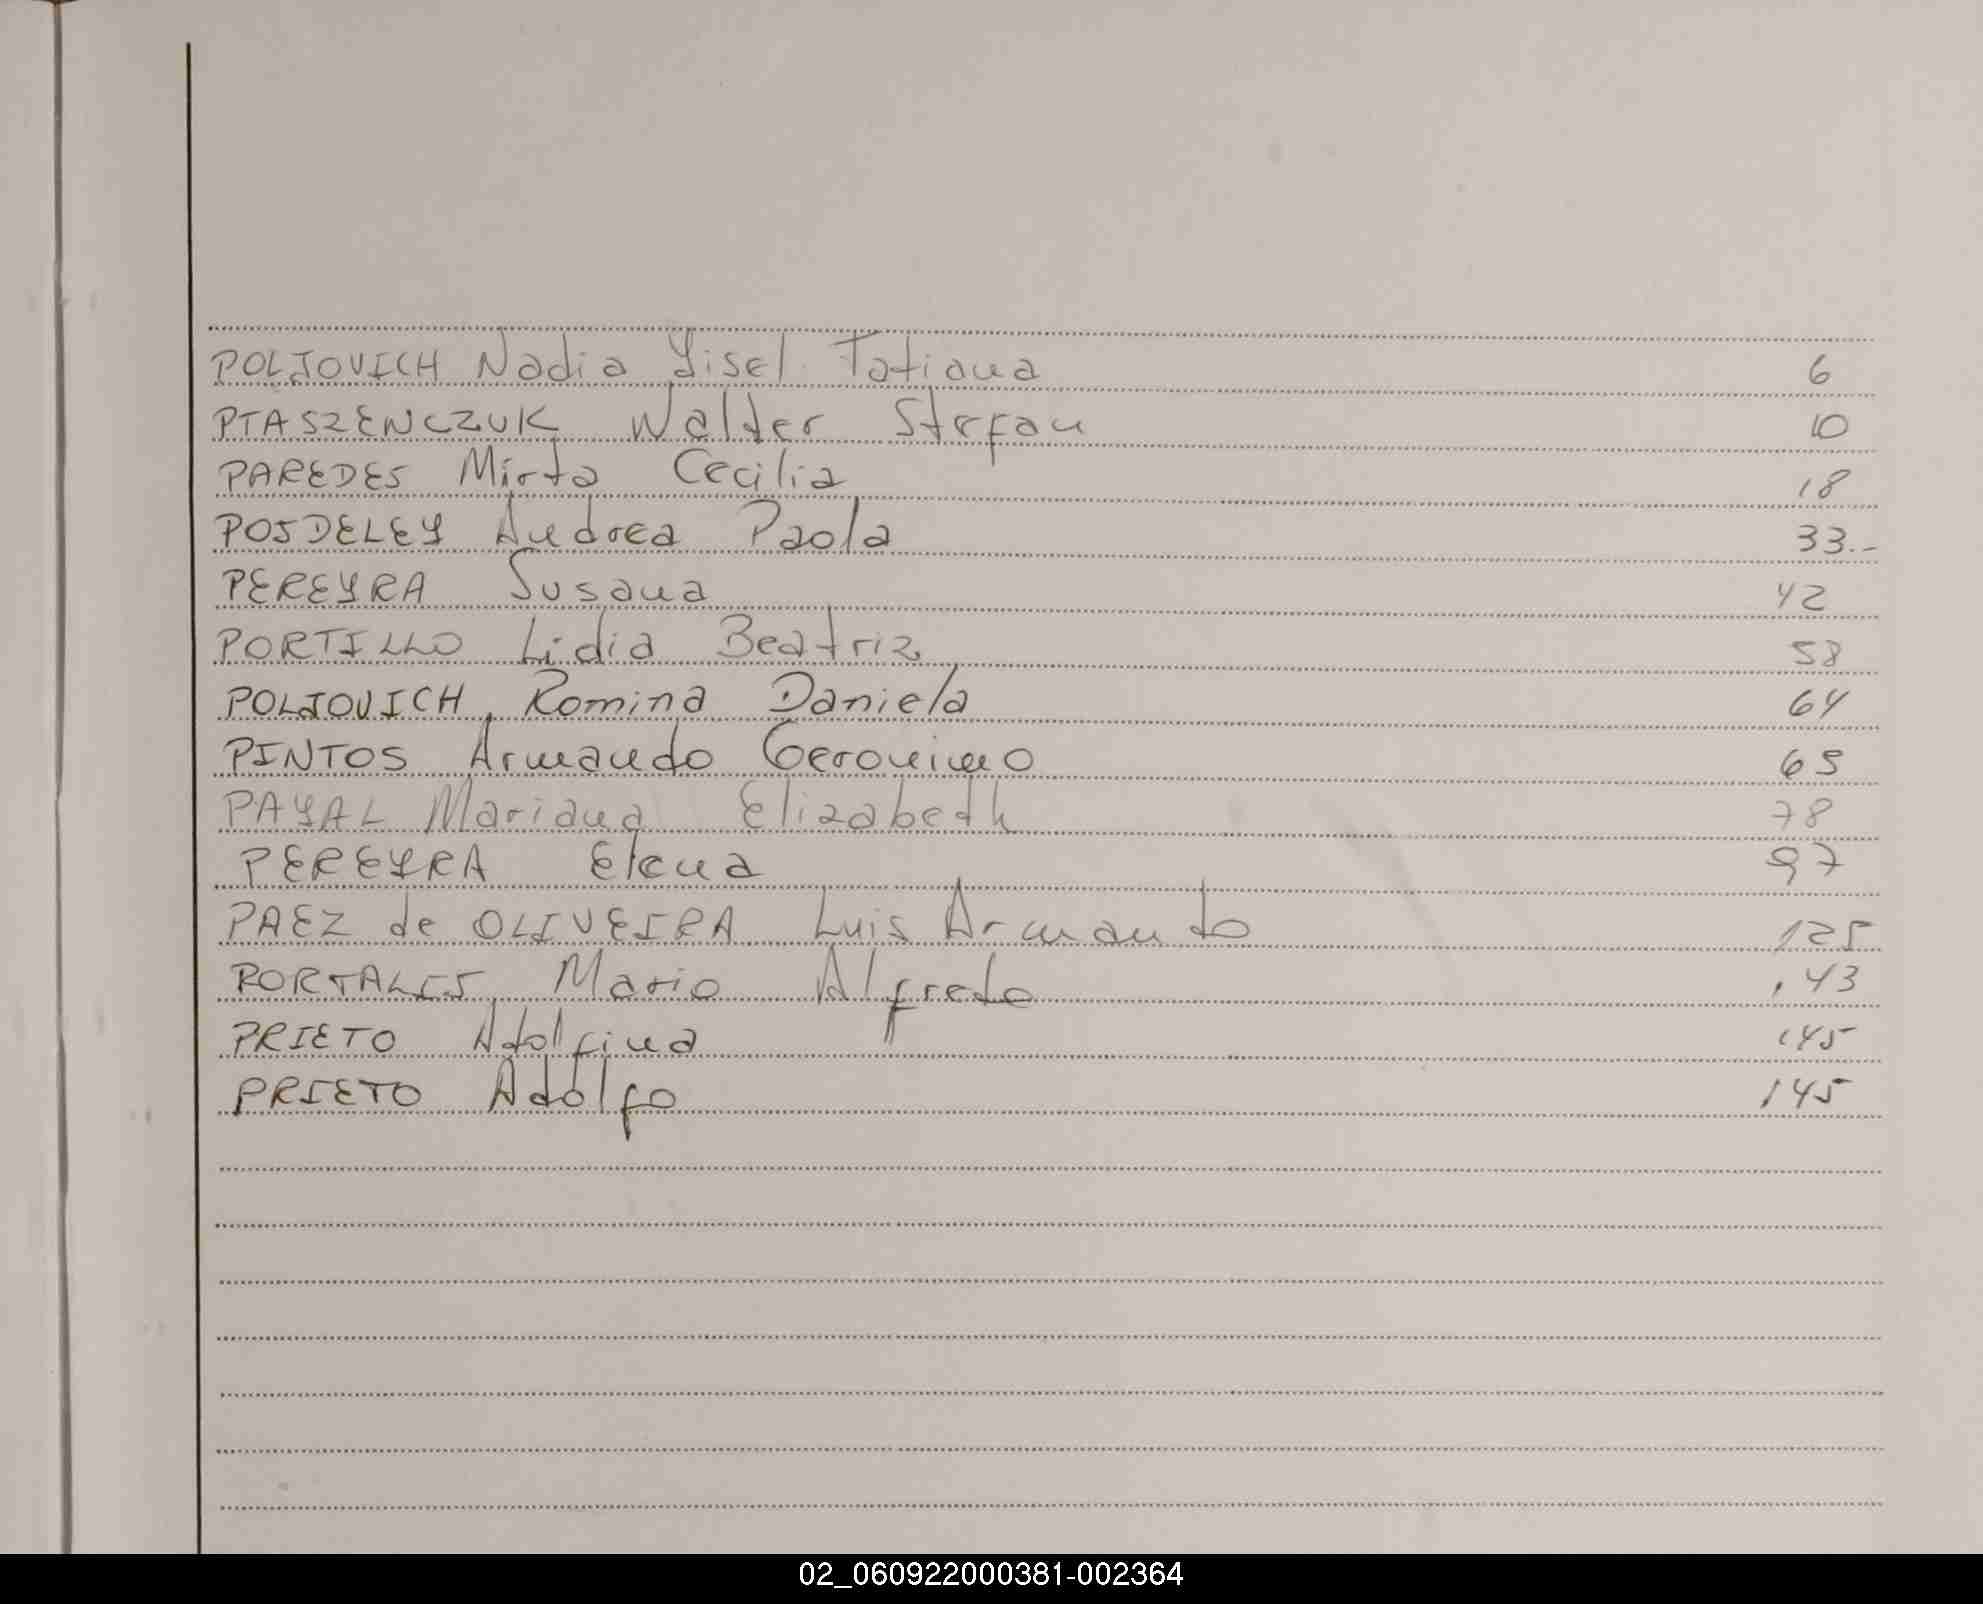 POLJOVICH Nadia Yisel Tatiana 6
PTASZENCZUK Walter Stefan 10
PAREDES Mirta Cecilia 18
POSDELEY Andrea Paola 33.-
PEREYRA Susana 42
PORTILLO Lidia Beatriz 58
POLJOVICH, Romina Daniela 64
PINTOS Armando Geronimo 65
PAYAL Mariana Elizabeth 78
PEREYRA Elena 97
PAEZ de OLIVEIRA Luis Armando 125
PORTALES Mario Alfredo 143
PRIETO Adolfina 145
PRIETO Adolfo 145
02_060922000381-002364